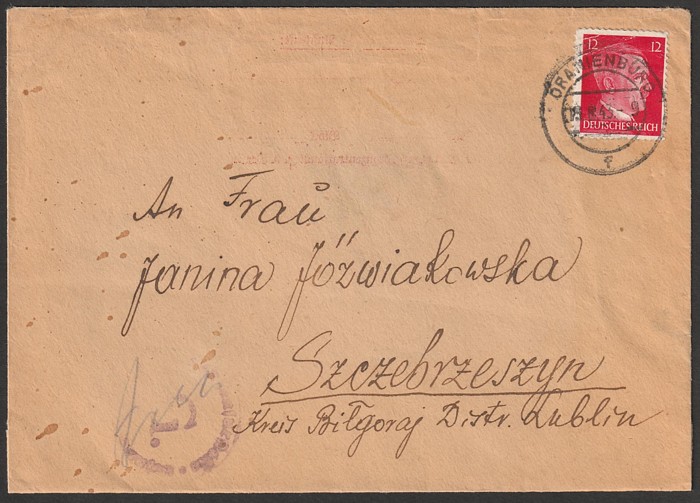 12 12
ORANIENBURG
DEUTSCHES REICH
f
An Frau
Janina Jóźwiakowska
Szczebrzeszyn
Kreis Biłgoraj Distr. Lublin